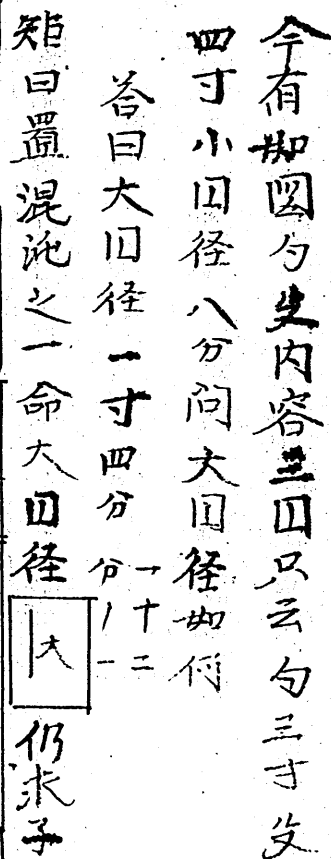 今有如図勾殳内容三円只云勾三寸殳
四寸小円径八分問大円径如何
荅曰大円径一寸四分一十二分ノ一
矩曰置混沌之一命大円径|大仍求子